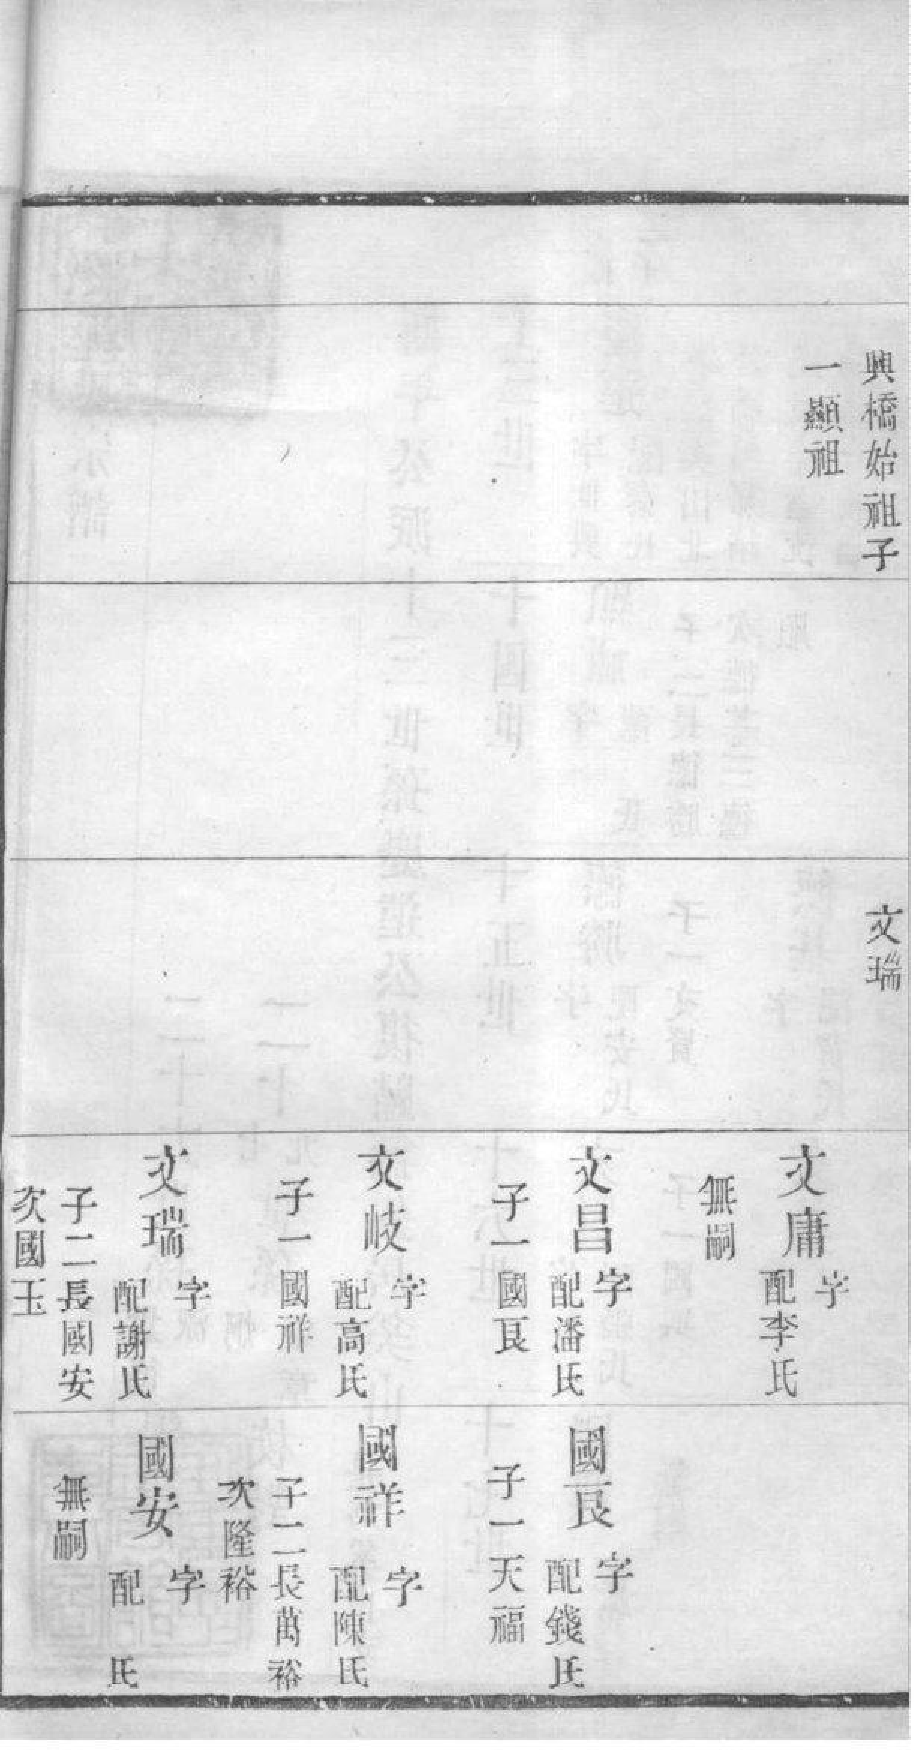 興橋始祖子
一顯祖
文瑞
文庸
字
配李氏
無嗣
文昌
字
配潘氏
子一國良
文岐
字
配高氏
子一國祥
文瑞
字
配謝氏
子二長國安
次國玉
國良
字
配錢氏
子一天福
國祥
字
配陳氏
子二長萬裕
次隆裕
國安
字
配 氏
無嗣